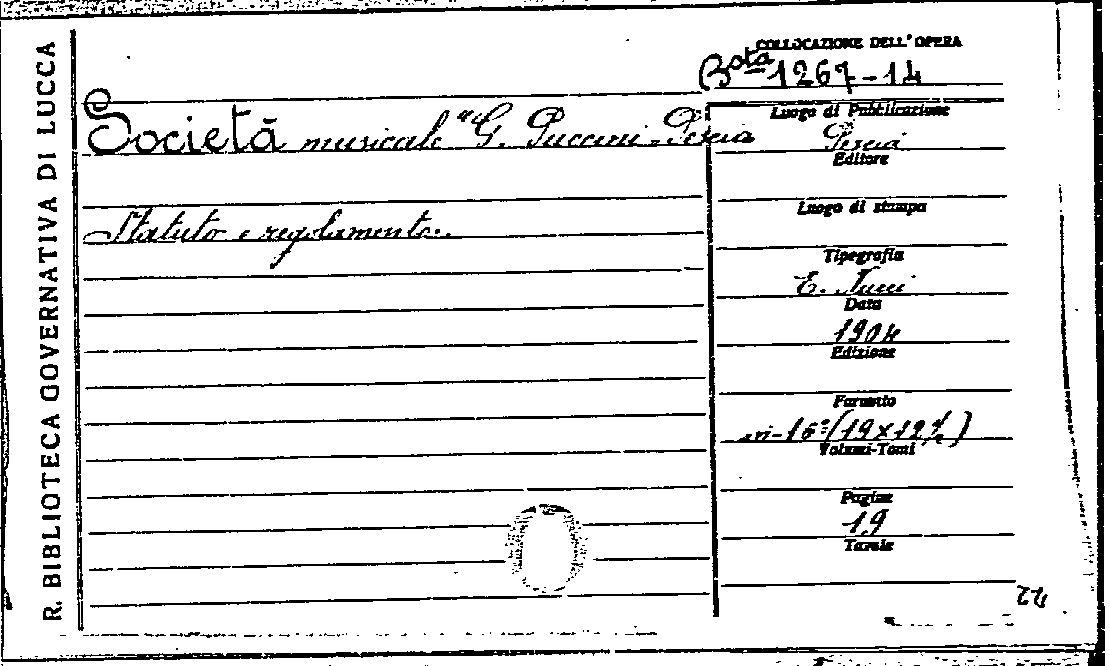 R. BIBLIOTECA GOVERNATIVA DI LUCCA
COLLOCAZIONE DELL'OPERA
Bsta 1267-14
Società musicale "G. Puccini - Pescia
Statuto e regolamento..
Luogo di Pubblicazione
Pescia
Editore
Luogo di stampa
Tipografia
E. Nucci
Data
1904
Edizione
Formato
in-16º (19x12½)
Volumi-Tomi
Pagine
19
Tavole